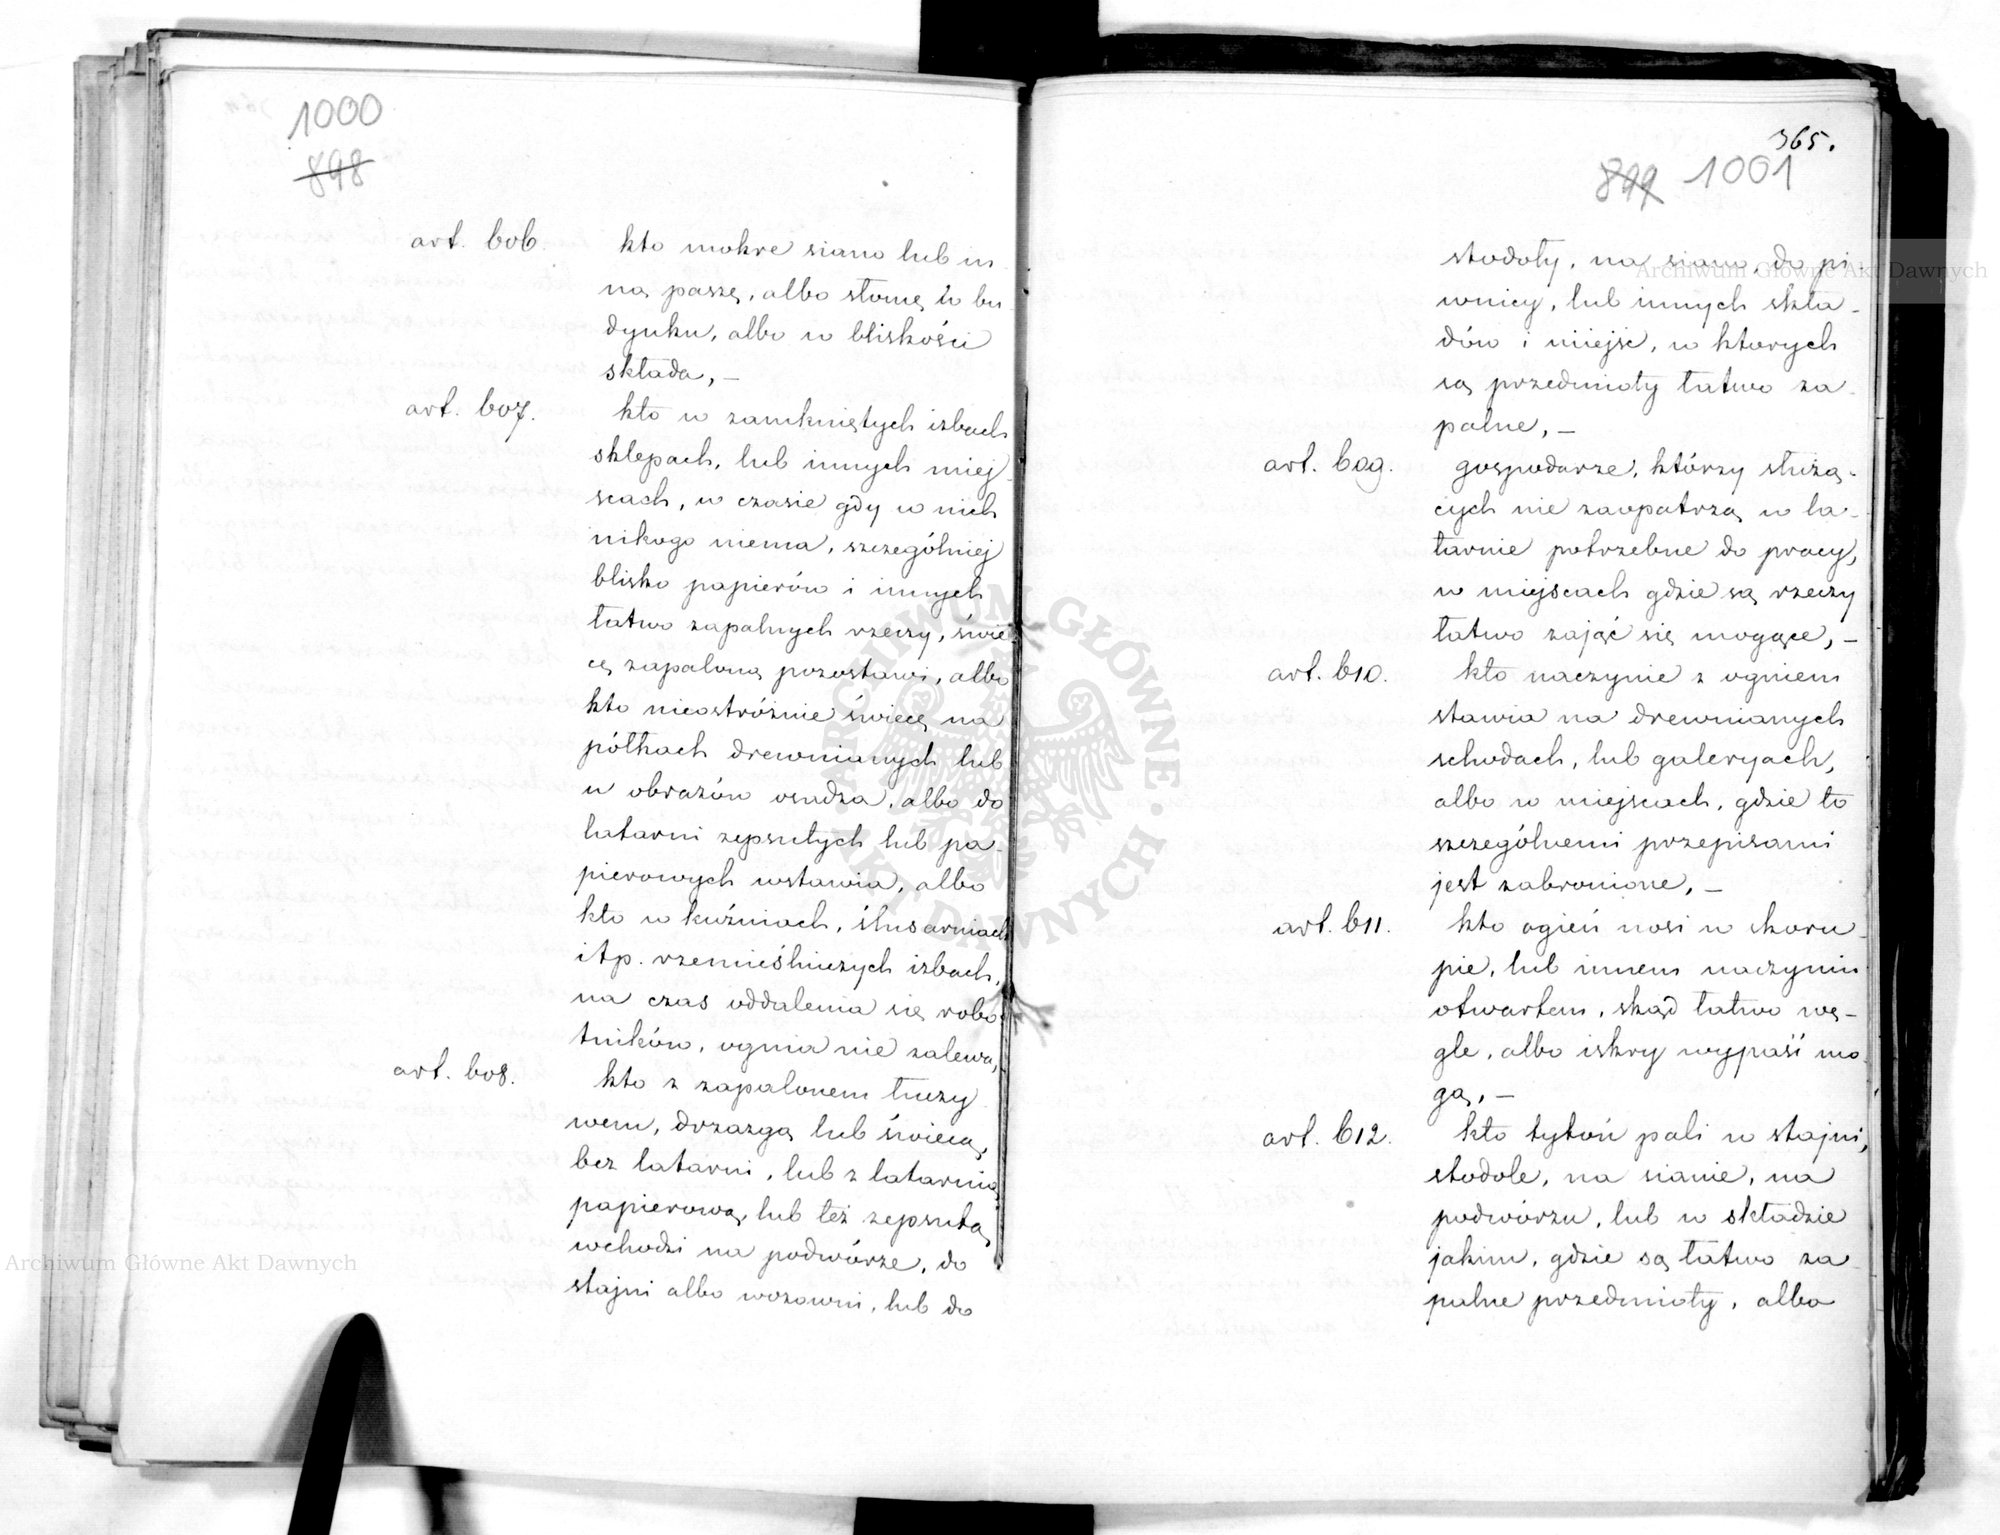 1000
898
art. 606.
kto mokre siano lub in
ną paszę, albo słomę w bu
dynku, albo w bliskości
składa, –
art. 607.
kto w zamkniętych izbach
sklepach, lub innych miej
scach, w czasie gdy w nich
nikogo niema, szczególniej
blisko papierów i innych
łatwo zapalnych rzeczy, świe
cę zapaloną pozostawi, albo
kto nieostróżnie świecę na
półkach drewnianych lub
u obrazów osadza, albo do
latarni zepsutych lub pa-
pierowych wstawia, albo
kto w kuźniach, ślusarniach
itp. rzemieślniczych izbach,
na czas oddalenia się robo-
tników, ognia nie zalewa,
art. 608.
kto z zapalonem łuczy
wem, drzazgą lub świecą,
bez latarni, lub z latarnią
papierową, lub też zepsutą
wchodzi na podwórze, do
stajni albo wozowni, lub do
365.
899 1001
stodoły, na siano, do pi
wnicy, lub innych skła-
dów i miejsc, w ktorych
są przedmioty łatwo za-
palne, –
art. 609.
gospodarze, którzy służą-
cych nie zaopatrzą w la-
tarnie potrzebne do pracy,
w miejscach gdzie są rzeczy
łatwo zająć się mogące, –
art. 610.
kto naczynie z ogniem
stawia na drewnianych
schodach, lub galeryach,
albo w miejscach, gdzie to
szczególnemi przepisami
jest zabronione, –
art. 611.
kto ogień nosi w skoru-
pie, lub innem naczyniu
otwartem, skąd łatwo wę-
gle, albo iskry wypaść mo
gą, –
art. 612.
kto tytoń pali w stajni,
stodole, na sianie, na
podwórzu, lub w składzie
jakim, gdzie są łatwo za
palne przedmioty, albo
Archiwum Główne Akt Dawnych
Archiwum Główne Akt Dawnych
ARCHIWUM GŁÓWNE AKT DAWNYCH